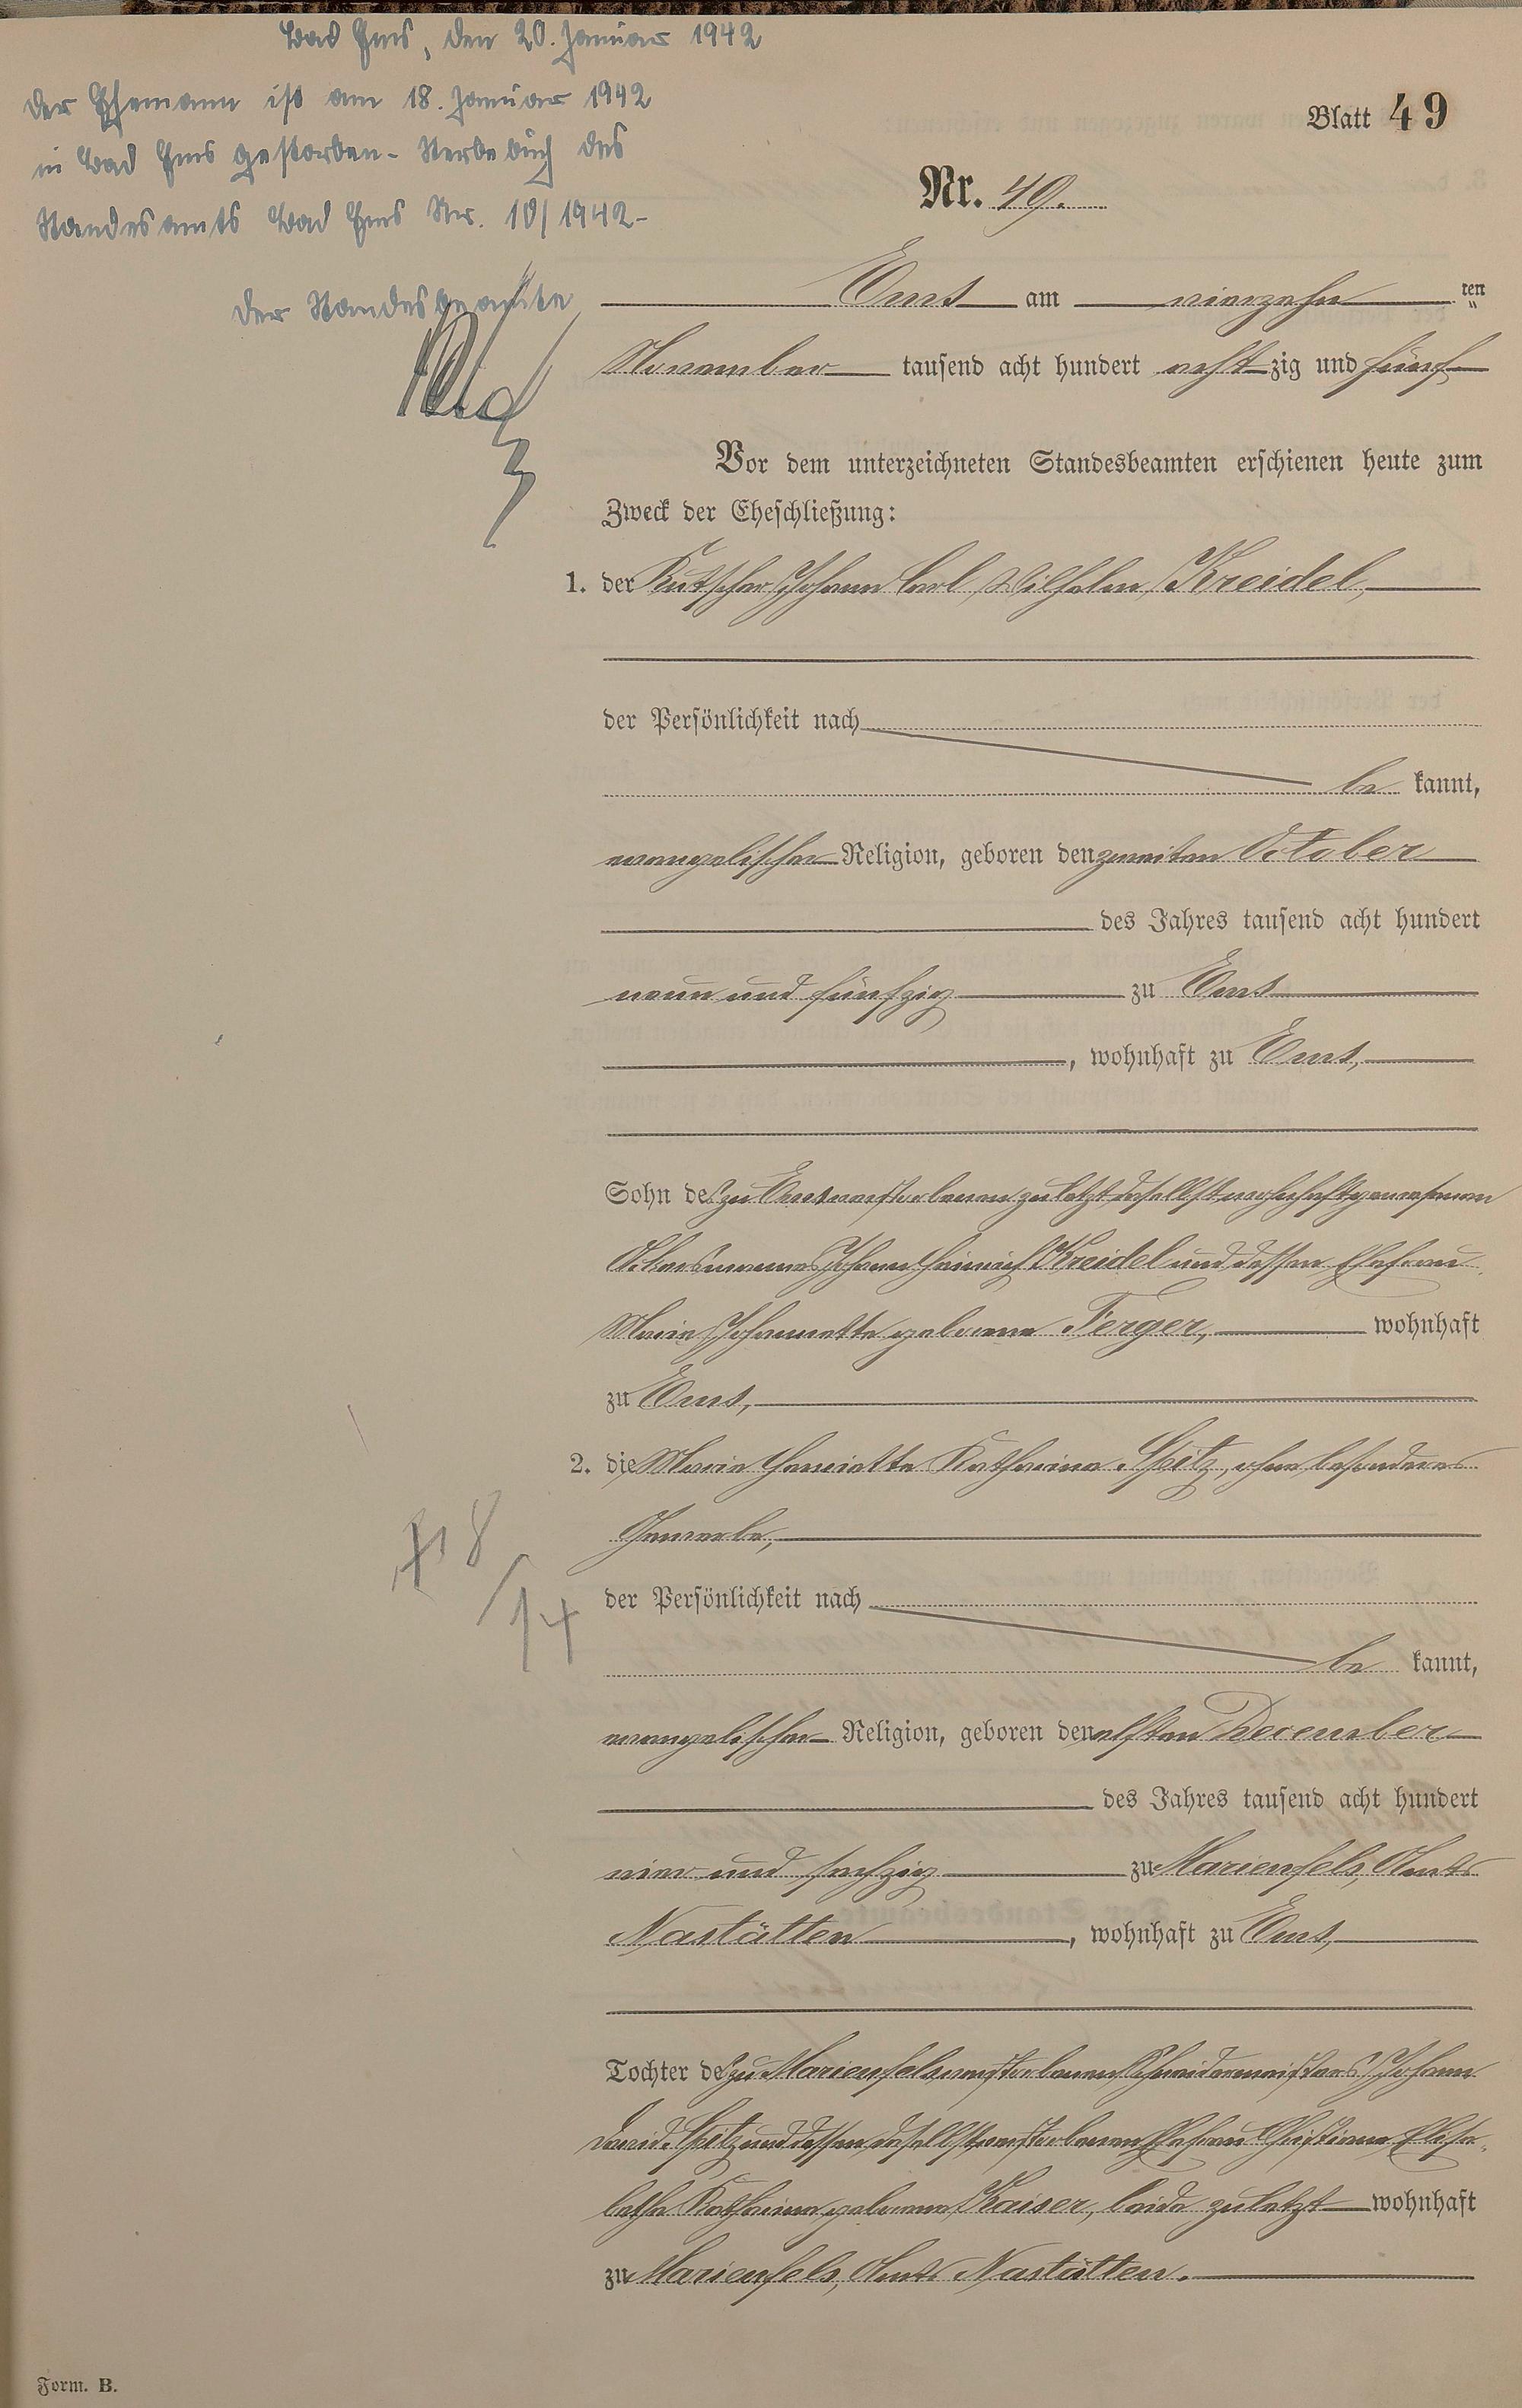 Bad Ems, den 20. Januar 1942
Der Ehemann ist am 18. Januar 1942
in Bad Ems gestorben - Sterbebuch des
Standesamts Bad Ems Nr. 10/1942 -
Der Standesbeamte
Blatt 49
Nr. 49.
Ems am vierzehn ten
November tausend acht hundert achtzig und fünf
Vor dem unterzeichneten Standesbeamten erschienen heute zum
Zweck der Eheschließung:
1. der Kutscher Johann Carl Wilhelm Kreidel,
der Persönlichkeit nach
be kannt,
evangelischer Religion, geboren den zweiten October
des Jahres tausend acht hundert
neun und fünfzig zu Ems
, wohnhaft zu Ems,
Sohn des zu Ems verstorbenen zuletzt daselbst wohnhaft gewesenen
Johann Heinrich Kreidel und dessen Ehefrau
Marie Johannette geborene Ferger, wohnhaft
zu Ems,
2. die Marie Henriette Katharina Spitz, ohne besonderes
Gewerbe,
der Persönlichkeit nach
be kannt,
evangelischer Religion, geboren den elften December
des Jahres tausend acht hundert
vier und sechzig zu Marienfels, Amts
Nastätten, wohnhaft zu Ems,
Tochter des zu Marienfels verstorbenen Schneidermeisters Johann
David Spitz und dessen daselbst verstorbenen Ehefrau Christiane Elisa-
betha Katharina geborene Kaiser, beide zuletzt wohnhaft
zu Marienfels, Amts Nastätten.
Form. B.